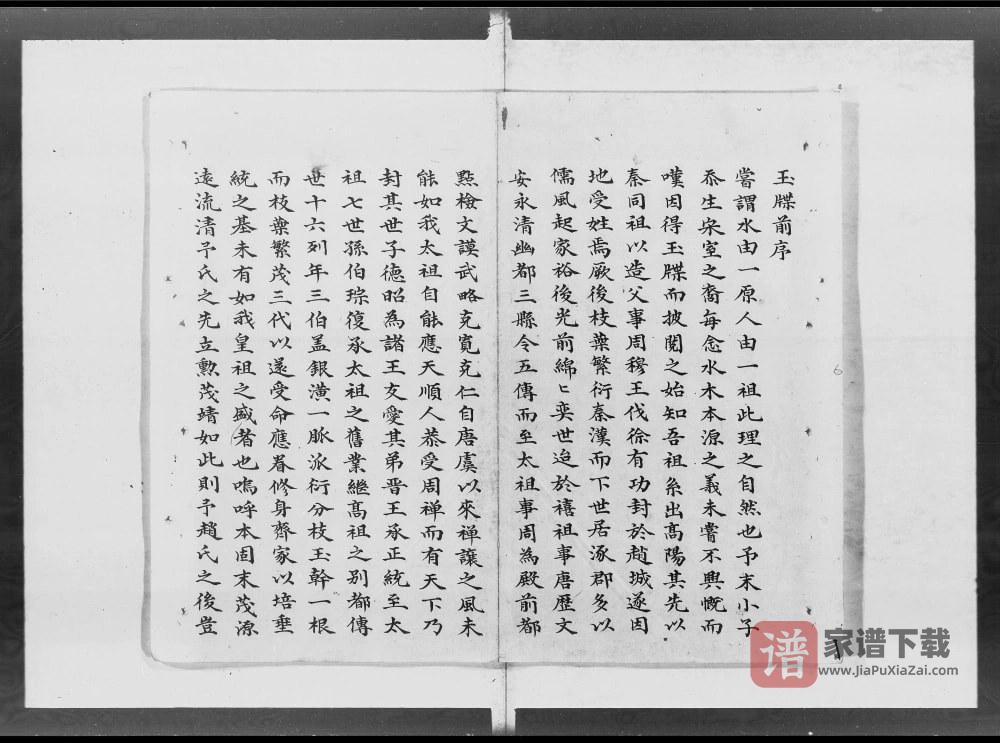 玉牒前序
嘗謂水由一原人由一祖此理之自然也予末小子
忝生宗室之裔每念水木本源之義未嘗不興慨而
嘆因得玉牒而披閱之始知吾祖系出高陽其先以
秦同祖以造父事周穆王伐徐有功封於趙城遂因
地受姓焉厥後枝葉繁衍秦漢而下世居涿郡多以
儒風起家裕後光前綿〻奕世迨於禧祖事唐歷文
安永清幽都三縣令五傳而至太祖事周為殿前都
㸃檢文謨武略克寬克仁自唐虞以來禅譲之風未
能如我太祖自能應天順人恭受周禅而有天下乃
封其世子德昭為諸王友愛其弟晋王承正統至太
祖七世孫伯琮復承太祖之舊業繼高祖之别都傳
世十六列年三伯盖銀潢一脈派衍分枝玉幹一根
而枝葉繁茂三代以還受命應眷修身齊家以培垂
統之基未有如我皇祖之盛者也嗚呼本固末茂源
遠流清予氏之先立勲茂靖如此則予趙氏之後豈
6
谱
家谱下载
www.JiaPuXiaZai.com